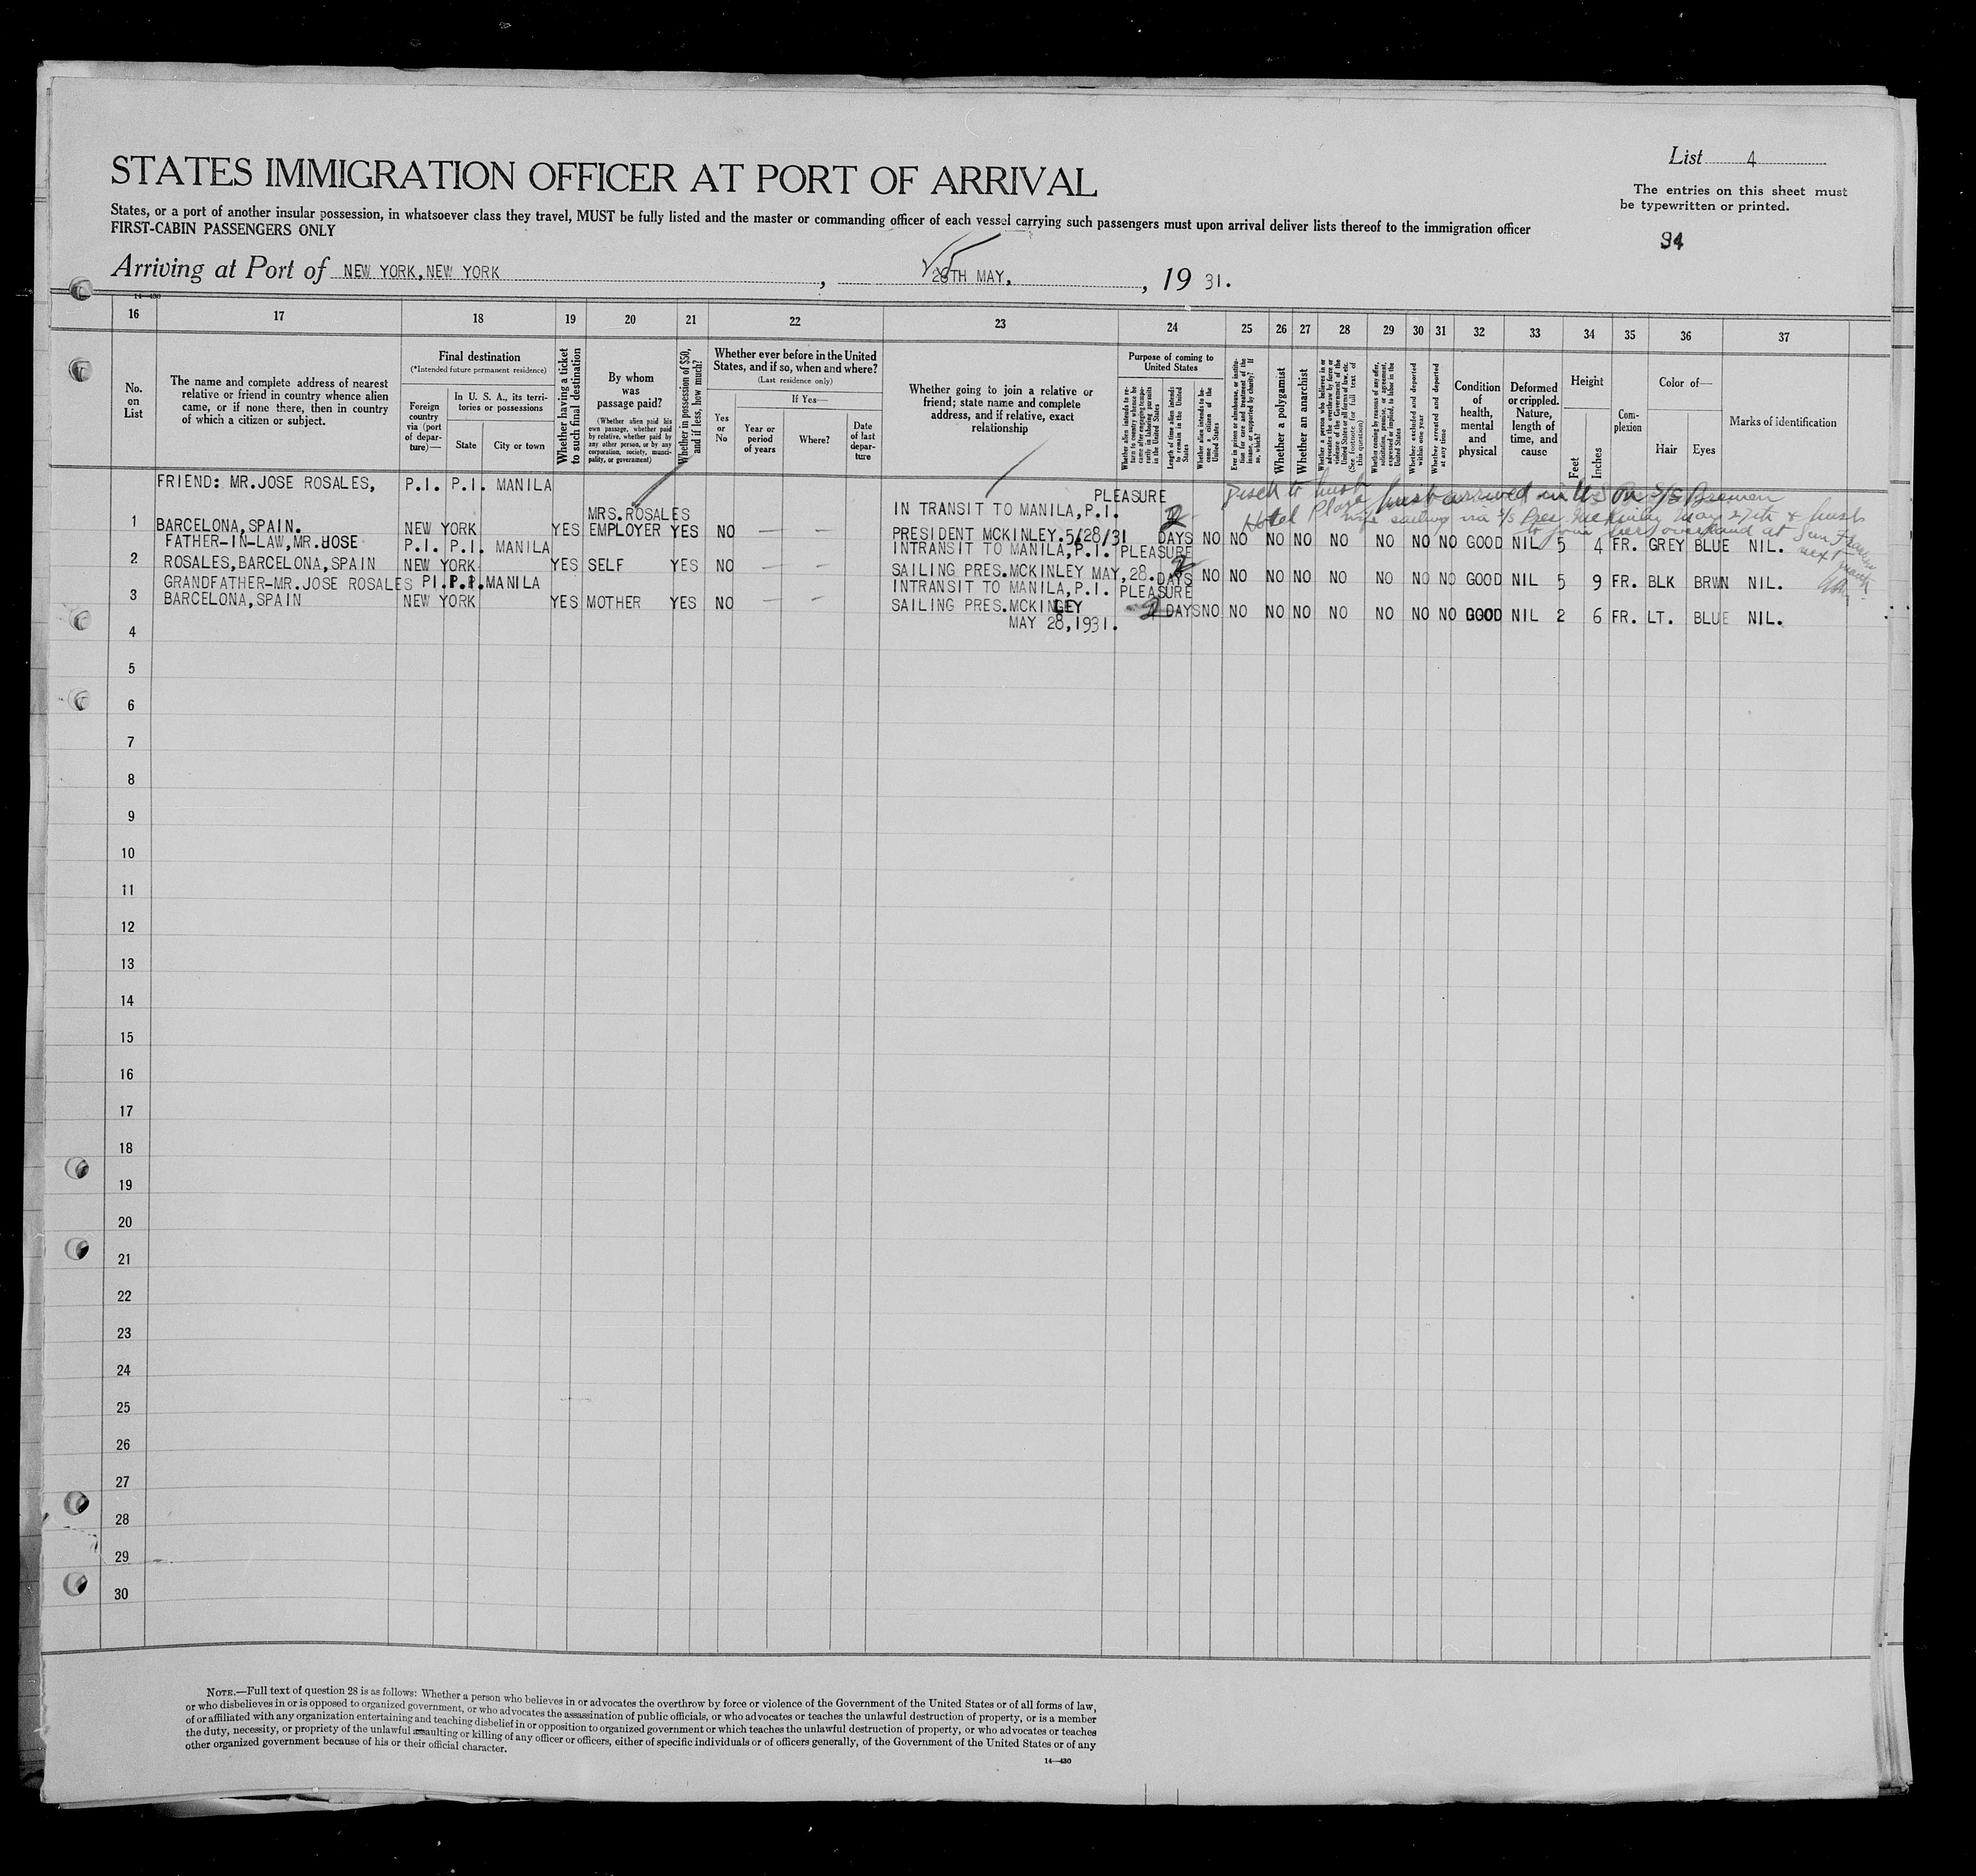 List 4
STATES IMMIGRATION OFFICER AT PORT OF ARRIVAL
The entries on this sheet must
be typewritten or printed.
States, or a port of another insular possession, in whatsoever class they travel, MUST be fully listed and the master or commanding officer of each vessel carrying such passengers must upon arrival deliver lists thereof to the immigration officer
FIRST-CABIN PASSENGERS ONLY
94
Arriving at Port of NEW YORK, NEW YORK, 26TH MAY, , 19 31.
14—430
16 17 18 19 20 21 22 23 24 25 26 27 28 29 30 31 32 33 34 35 36 37
No. on List
The name and complete address of nearest relative or friend in country whence alien came, or if none there, then in country of which a citizen or subject.
Final destination
(*Intended future permanent residence)
Foreign country via (port of departure)—
In U. S. A., its territories or possessions
State
City or town
Whether having a ticket to such final destination
By whom was passage paid?
(Whether alien paid his own passage, whether paid by relative, whether paid by any other person, or by any corporation, society, municipality, or government)
Whether in possession of $50, and if less, how much?
Whether ever before in the United States, and if so, when and where?
(Last residence only)
Yes or No
If Yes—
Year or period of years
Where?
Date of last departure
Whether going to join a relative or friend; state name and complete address, and if relative, exact relationship
Purpose of coming to United States
Whether alien intends to return to country whence he came after engaging temporarily in laboring pursuits in the United States
Length of time alien intends to remain in the United States
Whether alien intends to become a citizen of the United States
Ever in prison or almshouse, or institution for care and treatment of the insane, or supported by charity? If so, which?
Whether a polygamist
Whether an anarchist
Whether a person who believes in or advocates the overthrow by force or violence of the Government of the United States or all forms of law, etc. (See footnote for full text of this question)
Whether coming by reasons of any offer, solicitation, promise, or agreement, expressed or implied, to labor in the United States
Whether excluded and deported within one year
Whether arrested and deported at any time
Condition of health, mental and physical
Deformed or crippled. Nature, length of time, and cause
Height
Feet
Inches
Complexion
Color of—
Hair
Eyes
Marks of identification
Hotel Plaza, husb arrived in U S on S/S Bremen
FRIEND: MR. JOSE ROSALES, P.I. P.I. MANILA MRS. ROSALES IN TRANSIT TO MANILA, P.I. PLEASURE
1 BARCELONA, SPAIN. NEW YORK YES EMPLOYER YES NO — — PRESIDENT MCKINLEY. 5/28/31 2 DAYS NO NO NO NO NO NO NO NO GOOD NIL 5 4 FR. GREY BLUE NIL.
FATHER-IN-LAW, MR. JOSE P.I. P.I. MANILA INTRANSIT TO MANILA, P.I. PLEASURE
2 ROSALES, BARCELONA, SPAIN NEW YORK YES SELF YES NO — — SAILING PRES. MCKINLEY MAY, 28. 2 DAYS NO NO NO NO NO NO NO NO GOOD NIL 5 9 FR. BLK BRWN NIL.
GRANDFATHER-MR. JOSE ROSALES PI. P.I. MANILA INTRANSIT TO MANILA, P.I. PLEASURE
3 BARCELONA, SPAIN NEW YORK YES MOTHER YES NO — — SAILING PRES. MCKINLEY 2 DAYS NO NO NO NO NO NO NO NO GOOD NIL 2 6 FR. LT. BLUE NIL.
MAY 28, 1931.
4
5
6
7
8
9
10
11
12
13
14
15
16
17
18
19
20
21
22
23
24
25
26
27
28
29
30
NOTE.—Full text of question 28 is as follows: Whether a person who believes in or advocates the overthrow by force or violence of the Government of the United States or of all forms of law,
or who disbelieves in or is opposed to organized government, or who advocates the assassination of public officials, or who advocates or teaches the unlawful destruction of property, or is a member
of or affiliated with any organization entertaining and teaching disbelief in or opposition to organized government or which teaches the unlawful destruction of property, or who advocates or teaches
the duty, necessity, or propriety of the unlawful assaulting or killing of any officer or officers, either of specific individuals or of officers generally, of the Government of the United States or of any
other organized government because of his or their official character.
14—430